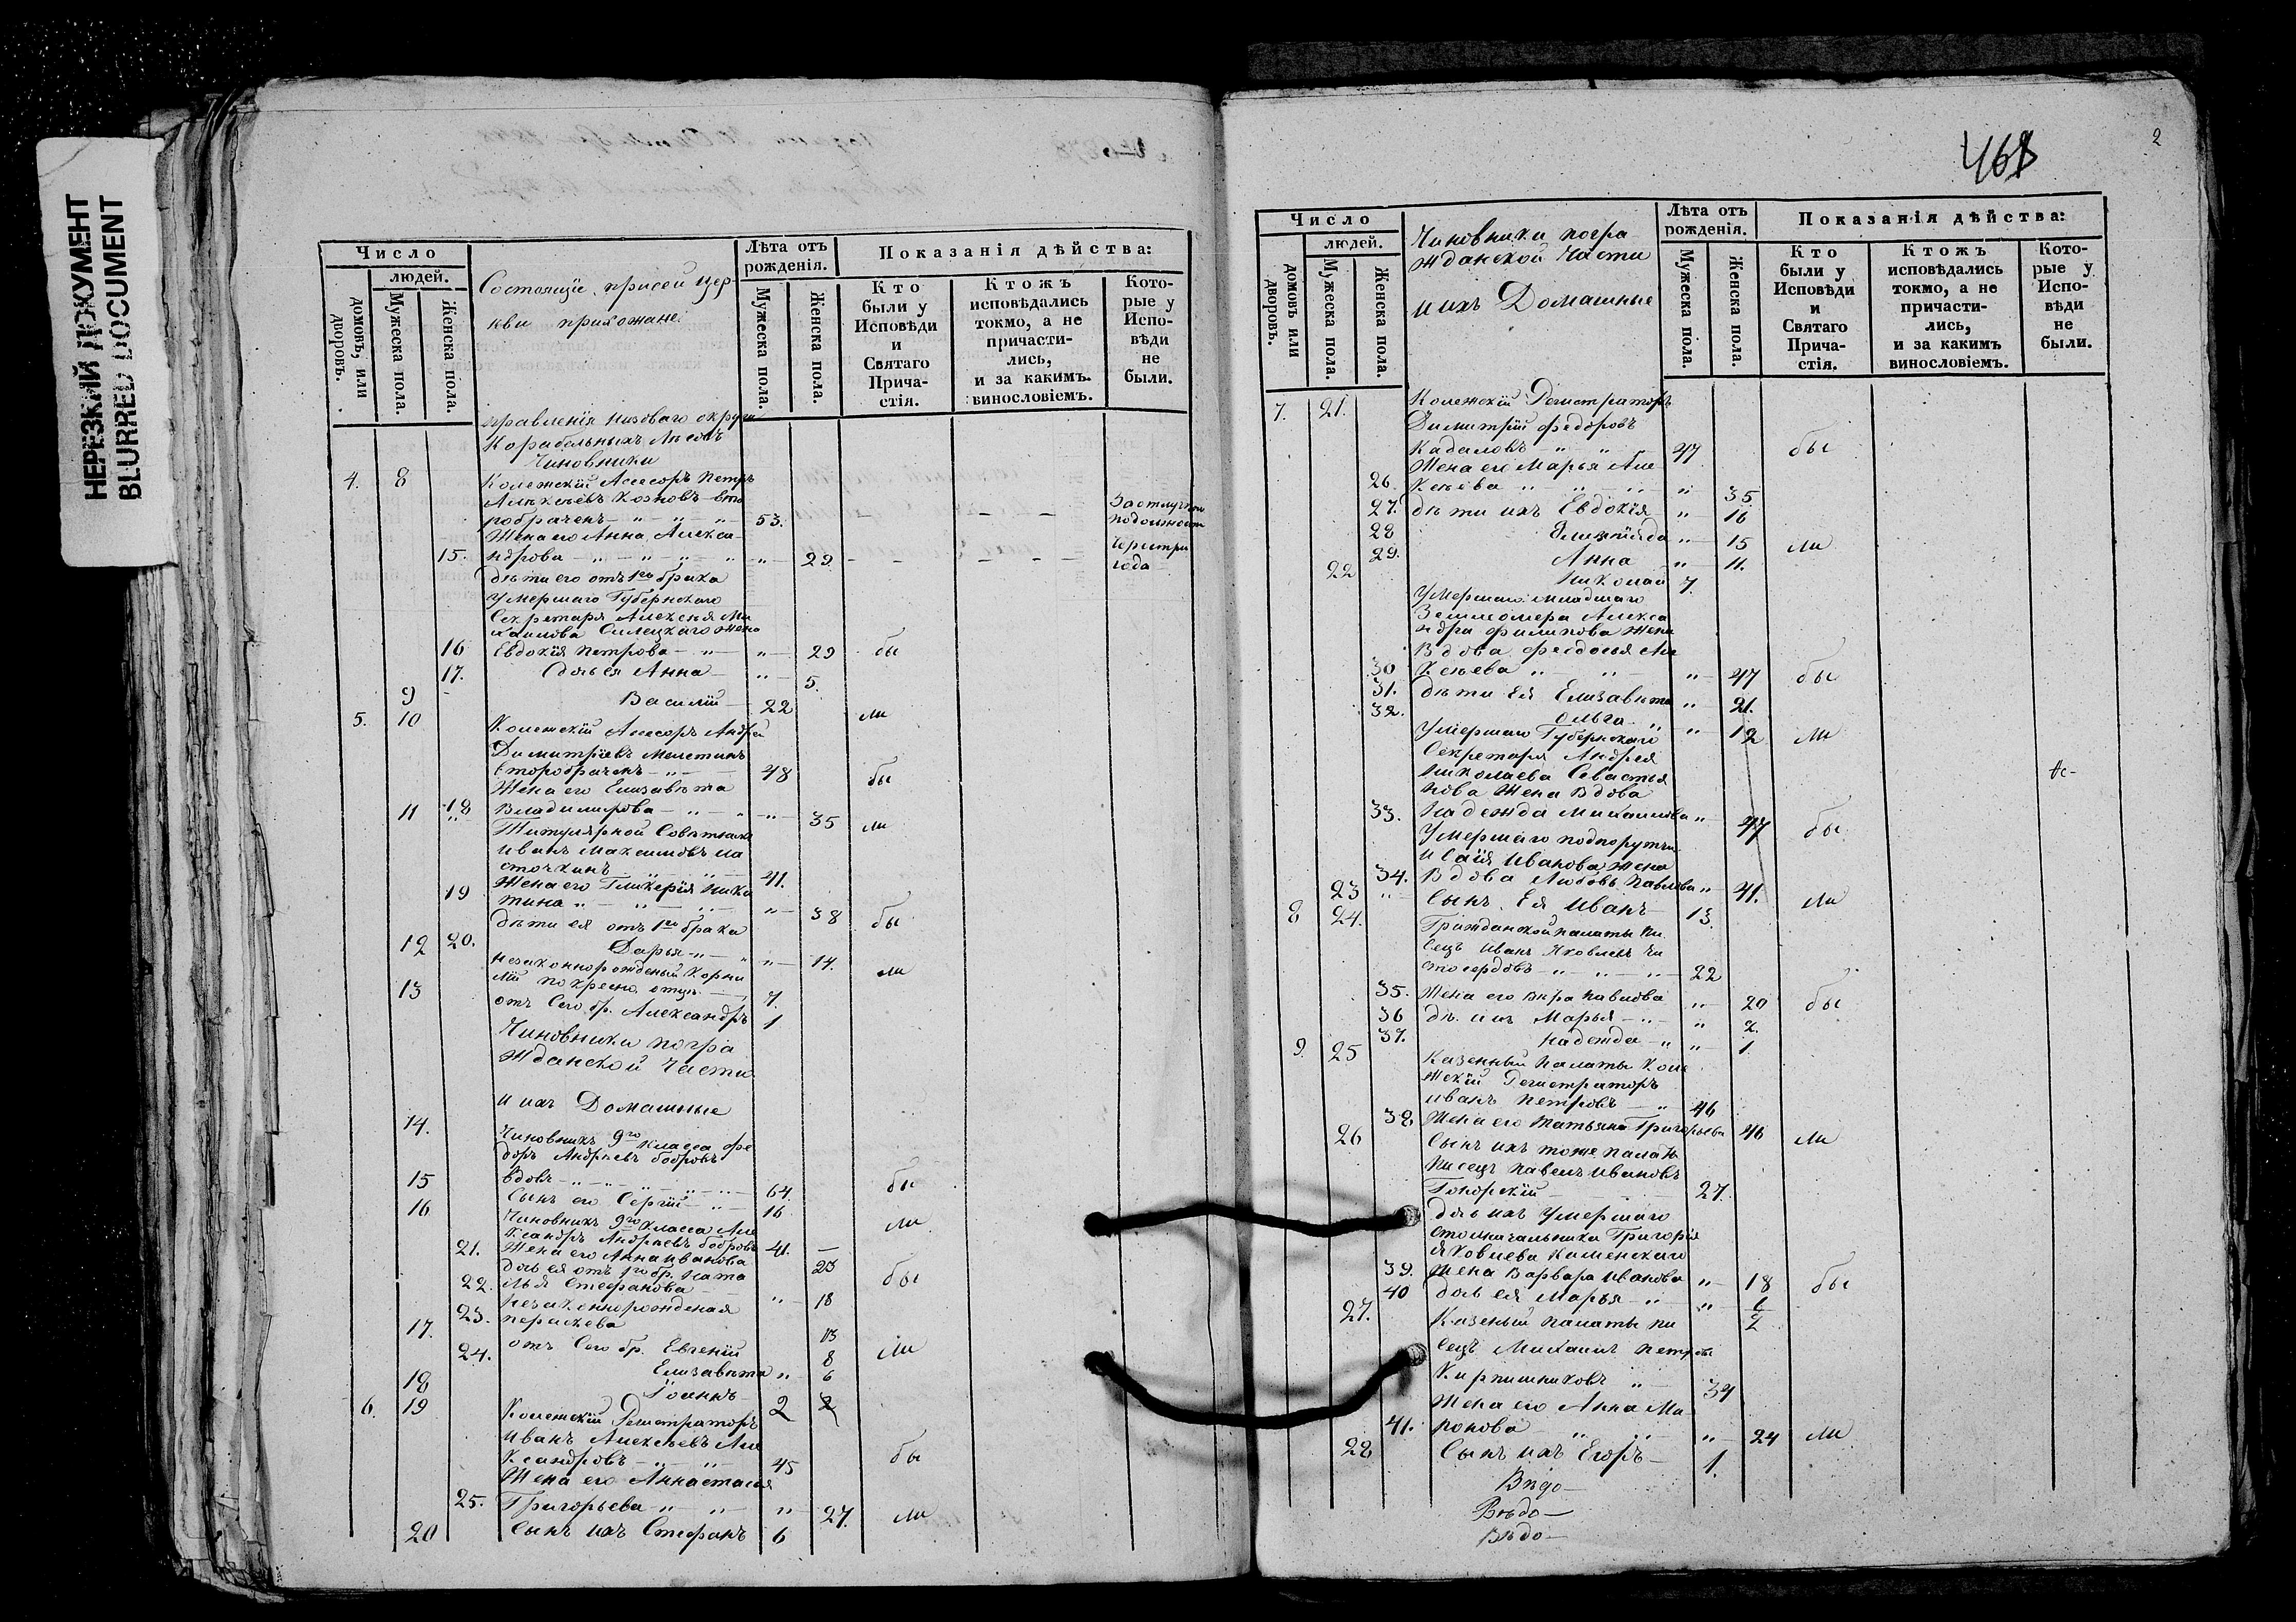 НЕРЕЗКИЙ ДОКУМЕНТ
BLURRED DOCUMENT
Число
людей.
домовъ, или дворовъ.
Мужеска пола.
Женска пола.
Состоящіе при сей цер-
кви прихожане.
Лѣта отъ рожденія.
Мужеска пола.
Женска пола.
Показанія дѣйства:
Кто были у Исповѣди и Святаго Прича-стія.
Ктожъ исповѣдались токмо, а не причасти-лись, и за какимъ. винословіемъ.
Кото-рые у Испо-вѣди не были.
правленія низоваго округа
Корабельныхъ лѣсовъ
Чиновники
4. 8 Колежскій Асесоръ Петръ
Алексѣевъ вто
робраченъ 53.
Жена его Анна Алекса
15. ндрова 29
дѣти его отъ 1го брака
Умершаго Губернскаго
Секретаря Алексѣя Ми
хаилова жена
16 Евдокія Петрова 29 бы
17. дочь ея Анна 5.
9 Василій 22 ли
5. 10 Колежскій Асесоръ Андрей
Димитріевъ
второбраченъ 48 бы
Жена его Елизавѣта
11 18 Владимирова 35 ли
Титулярной Совѣтникъ
Иванъ Максимовъ Ла
сточкинъ 41.
Жена его Гликерія Ники
19 тина 38 бы
дѣти ея отъ 1го брака
12 20. Дарья 14. ли
незаконнорожденый Корни
лій по кресно. отцу 7.
13 отъ Сего бр. Александръ 1
Чиновники по гра
жданской части
и ихъ Домашные
14. Чиновникъ 9го класса Фе
доръ Андреевъ Бобровъ
вдовъ 64. бы
15 Сынъ его Сергій 16
16 Чиновникъ 9го класса Але ли
ксандръ Андреевъ Бобровъ 41.
21. Жена его Анна Иванова 23
дочь ея отъ 1го бр. Ната бы
22. лья Стефанова 18
незаконнорожденая
23. 13
17. отъ Сего бр. Евгеній 8 ли
24. Елизавета 6
18 Іоаннъ 2 2
6. 19 Колежскій Регистраторъ
Иванъ Алексѣевъ Але
ксандровъ 45 бы
Жена его Аннастасія
25. Григорьева 27. ли
20 Сынъ ихъ Стефанъ 6
468
2
Число
людей.
домовъ или дворовъ.
Мужеска пола.
Женска пола.
Чиновники по гра
жданской Части
и ихъ Домашные
Лѣта отъ рожденія.
Мужеска пола.
Женска пола.
Показанія дѣйства:
Кто были у Исповѣди и Святаго Прича-стія.
Ктожъ исповѣдались токмо, а не причасти-лись, и за какимъ винословіемъ.
Кото-рые у Испо-вѣди не были.
7. 21. Колежскій Регистраторъ
Димитрій Федоровъ
Кадаловъ 47 бы
Жена его Марья Але
26. ксѣева 35
27. дѣти ихъ Евдокія 16
28 15 ли
29. Анна 11.
22 Николай 7.
Умершаго младшаго
Землемера Алекса
ндра Филипова Жена
Вдова Феодосья Але
30 ксѣева 47 бы
31. дѣти ея Елизавѣта 21.
32. Ольга 12 ли
Умершаго Губернскаго
Секретаря Андрея
Николаева Севастья
нова Жена Вдова
33. Надежда Михаилова 47 бы
Умершаго подпоручи
Иванова Жена
34. Вдова Любовь Павлова 41. ли
23 Сынъ Ея Иванъ 13.
8 24. Гражданской палаты пи
сецъ Иванъ Яковлевъ Чи
стосердовъ 22
35. Жена его Вѣра Павлова 20 бы
36 дѣ. ихъ Марья 2.
37. Надежда 1.
9. 25 Казенный палаты Коле
жскій Регистраторъ
Иванъ Петровъ 46
38 Жена его Татьяна Григорьева 46 ли
26 Сынъ ихъ тоже палаты
писецъ Павелъ Ивановъ
27.
дочь ихъ Умершаго
столначальника Григорія
Яковлева Каменскаго
39. Жена Варвара Иванова 18 бы
40 дочь ея Марья
27. Казеный палаты пи
сецъ Михаилъ Петровъ
Кирпишниковъ 34
Жена его Анна Ма
41. ронова 24 ли
28 Сынъ ихъ Егоръ 1.